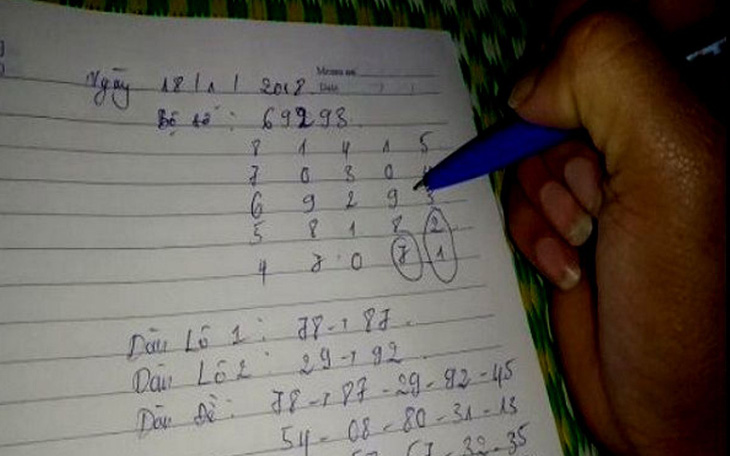 Ngày 18/1/2018
Bộ số: 69293.
8 1 4 1 5
7 0 3 0 4
6 9 2 9 3
5 8 1 8 2
4 7 0 7 1
Dàn Lô 1: 78-187.
Dàn Lô 2: 29-192.
Dàn Đề: 78-187-29-92-45
54-08-80-31-13
67-32-35